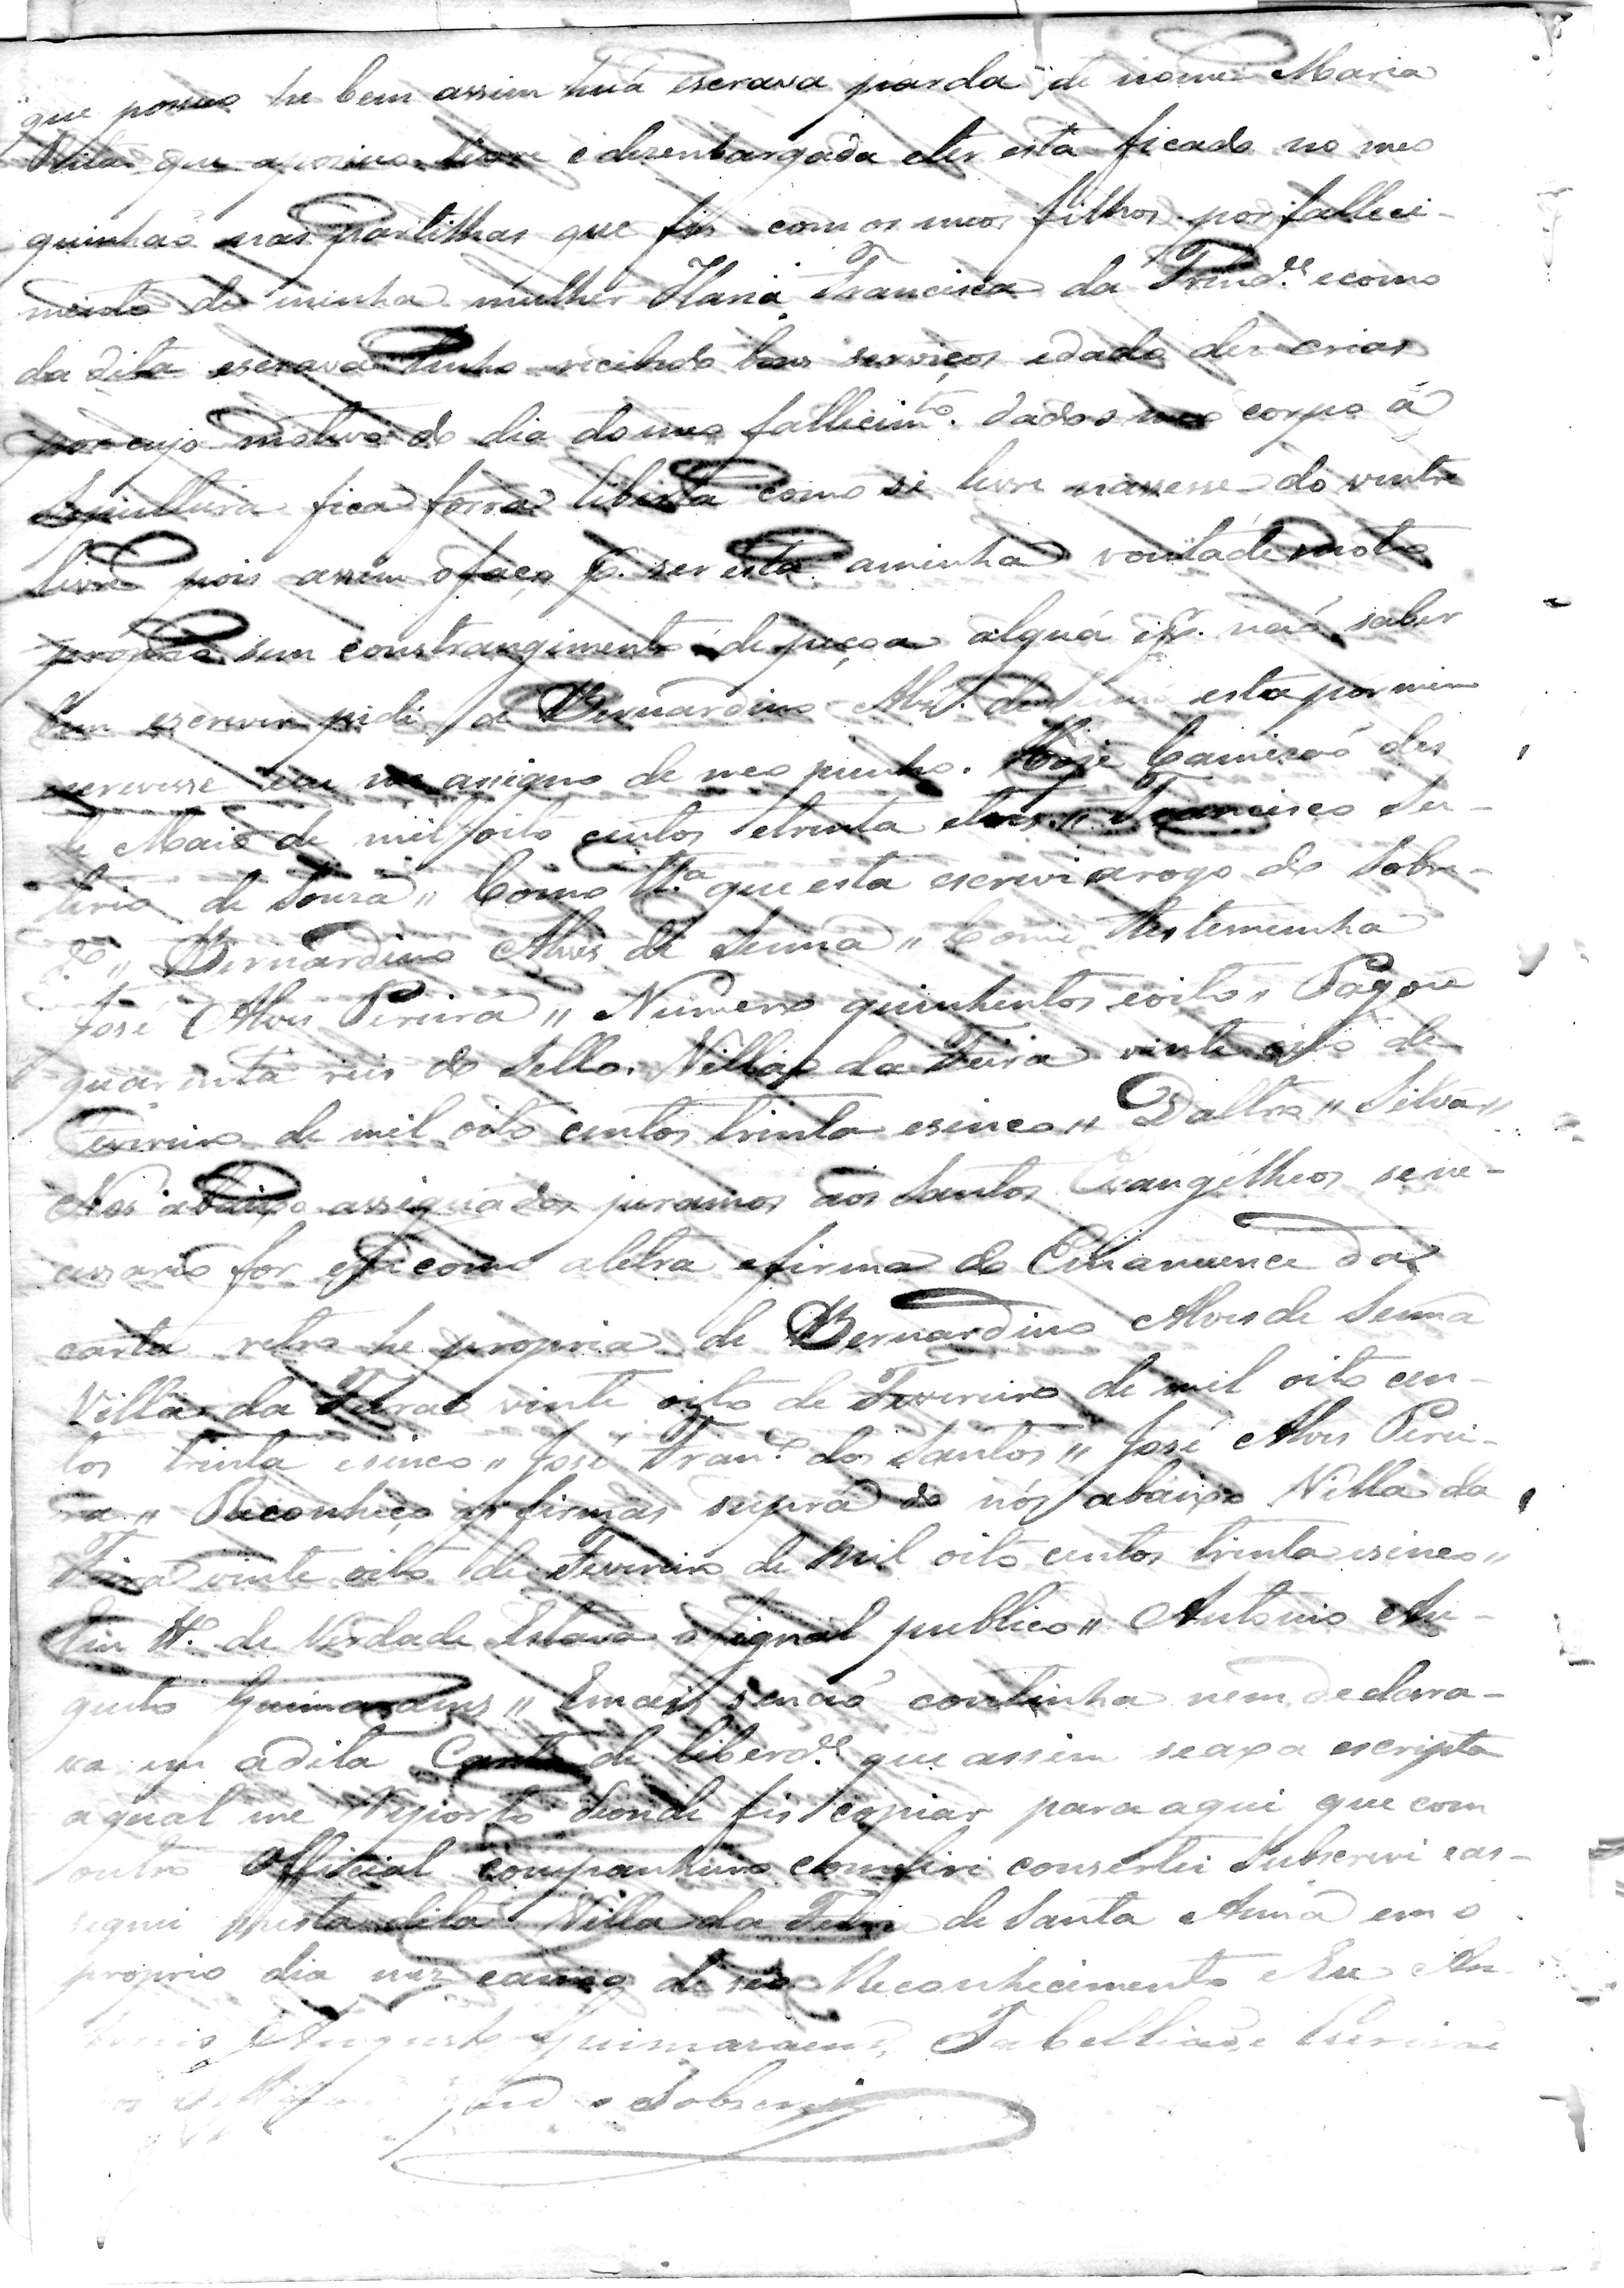 que possuo he bem assim huã escrava parda de nome Maria
Ritta que apossuo livre e dezembargada eter esta ficado no meo
quinhaõ nas partilhas que fis com os meos filhos por falleci-
mento de minha mulher Maria Francisca da Trind.e ecomo
da dita escrava tenho recebido bons serviços edado des crias
por cujo motivo do dia do meo fallecim.to dado o meo corpo á
Sepulltura fica forra liberta como si livre nascesse do ventre
livre pois assim ofaço p. ser esta aminha vontade moto
proprio sem constrangimento de peçoa alguã e naõ saber
bem escrever pidi a Bernardino Alv.s de Senna esta por mim
escrevesse eeu me assigno de meo punho. Hoje Camizaõ des
de Maio de mil oito centos etrinta etres,, Francisco Su-
terio de Souza,, Como tt.a que esta escrevi arogo do Sobre-
d.o ,, Bernardino Alves de Senna,, Como Testemunha
José Alves Pereira,, Numero quinhentos eoito,, Pagou
quarenta reis do Sello. Villa da Feira vinte oito de
Fevereiro de mil oito centos trinta esinco,, Daltro,, Silva,,
Nos abaixo assignados juramos aos Santos Evangelhos sene-
cessario for em como aletra efirma do Emanuence da
carta retro he propria de Bernardino Alves de Senna
Villa da Feira vinte oito de Fevereiro de mil oito cen-
tos trinta esinco,, José Fran.co dos Santos,, José Alves Perei-
ra,, Reconheço as firmas supra de nós abaixo Villa da
Feira vinte oito de Fevereiro de mil oito centos trinta esinco,,
Em tt.o de Verdade Estava o signal publico,, Antonio Au-
gusto Guimaraens,, Emais senaõ continha nem declara-
va em adita Carta de liberd.e que assim seaxa escripta
aqual me Reporto deonde fis copiar para aqui que com
outro Official companheiro comferi consertei Subscrevi eas-
signei nesta dita Villa da Feira de Santa Anna em o
proprio dia mez eanno de seo Reconhecimento Eu An-
tonio Augusto Guimaraens, Tabelliaõ, e Escrivaõ
o Sobscrevi